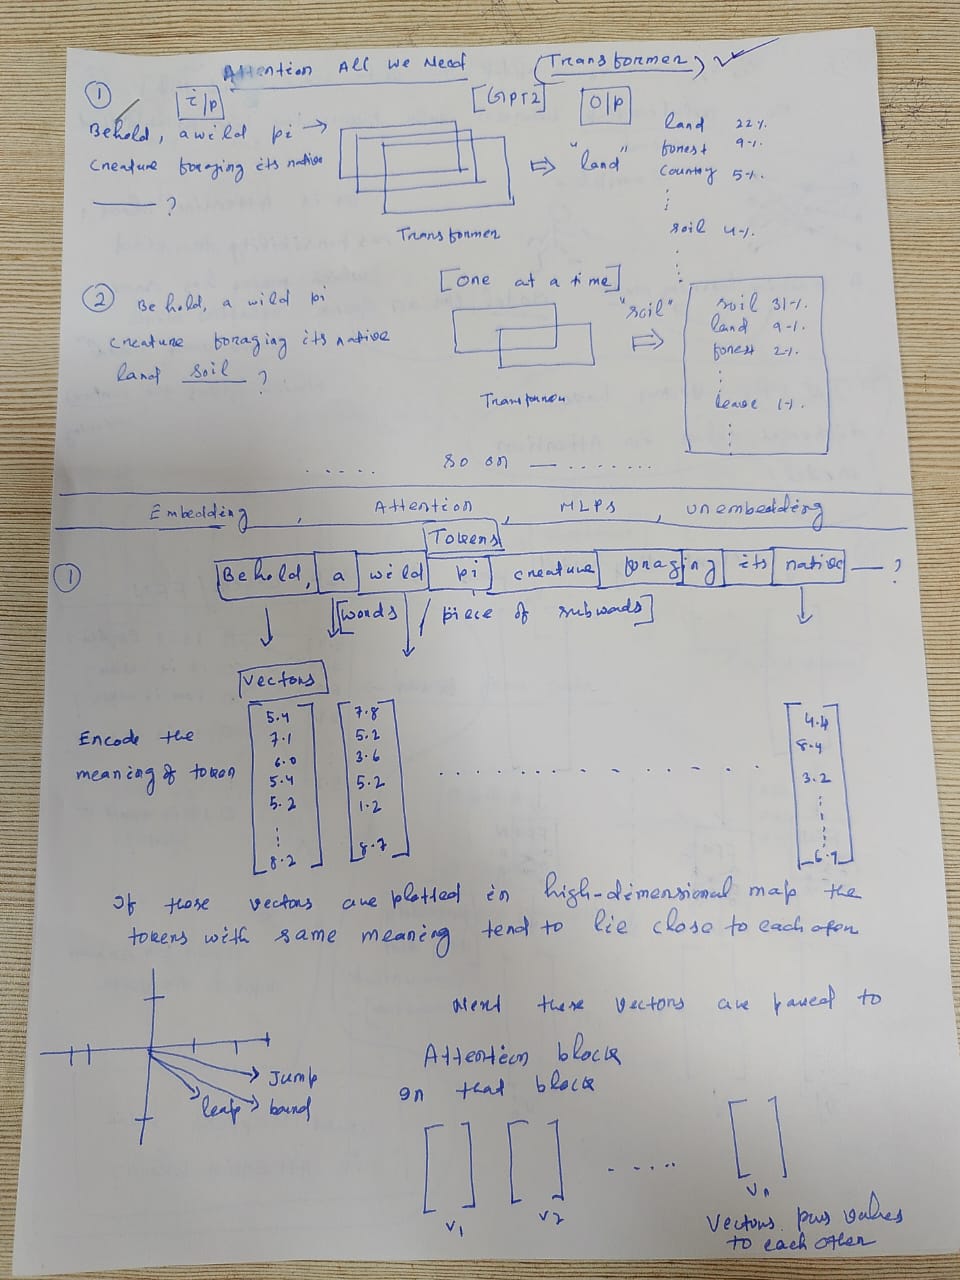 Attention All we Need (Transformer) ✓
① i/p [GPT2] O/p
Behold, a wild pi →
creature foraging its native
_____ ?
Transformer
⇒ "land"
land 22%.
forest 9%.
country 5%.
soil 4%.
② Behold, a wild pi
creature foraging its native
land soil ?
[One at a time]
Transformer
"soil" ⇒
soil 31%.
land 9%.
forest 2%.
leave 1%.
..... so on — .......
Embedding, Attention, MLPs, unembedding
Tokens
① Behold, a wild pi creature foraging its native — ?
[words / piece of subwords]
Vectors
Encode the
meaning of token
5.4
7.1
6.0
5.4
5.2
8.2
7.8
5.2
3.6
5.2
1.2
8.7
4.4
8.4
3.2
6.9
If those vectors are plotted in high-dimensional map the
tokens with same meaning tend to lie close to each
Jump
bound
leap
Next these vectors are to
Attention block
In that block
V1 V2 ..... Vn
Vectors pass values
to each other